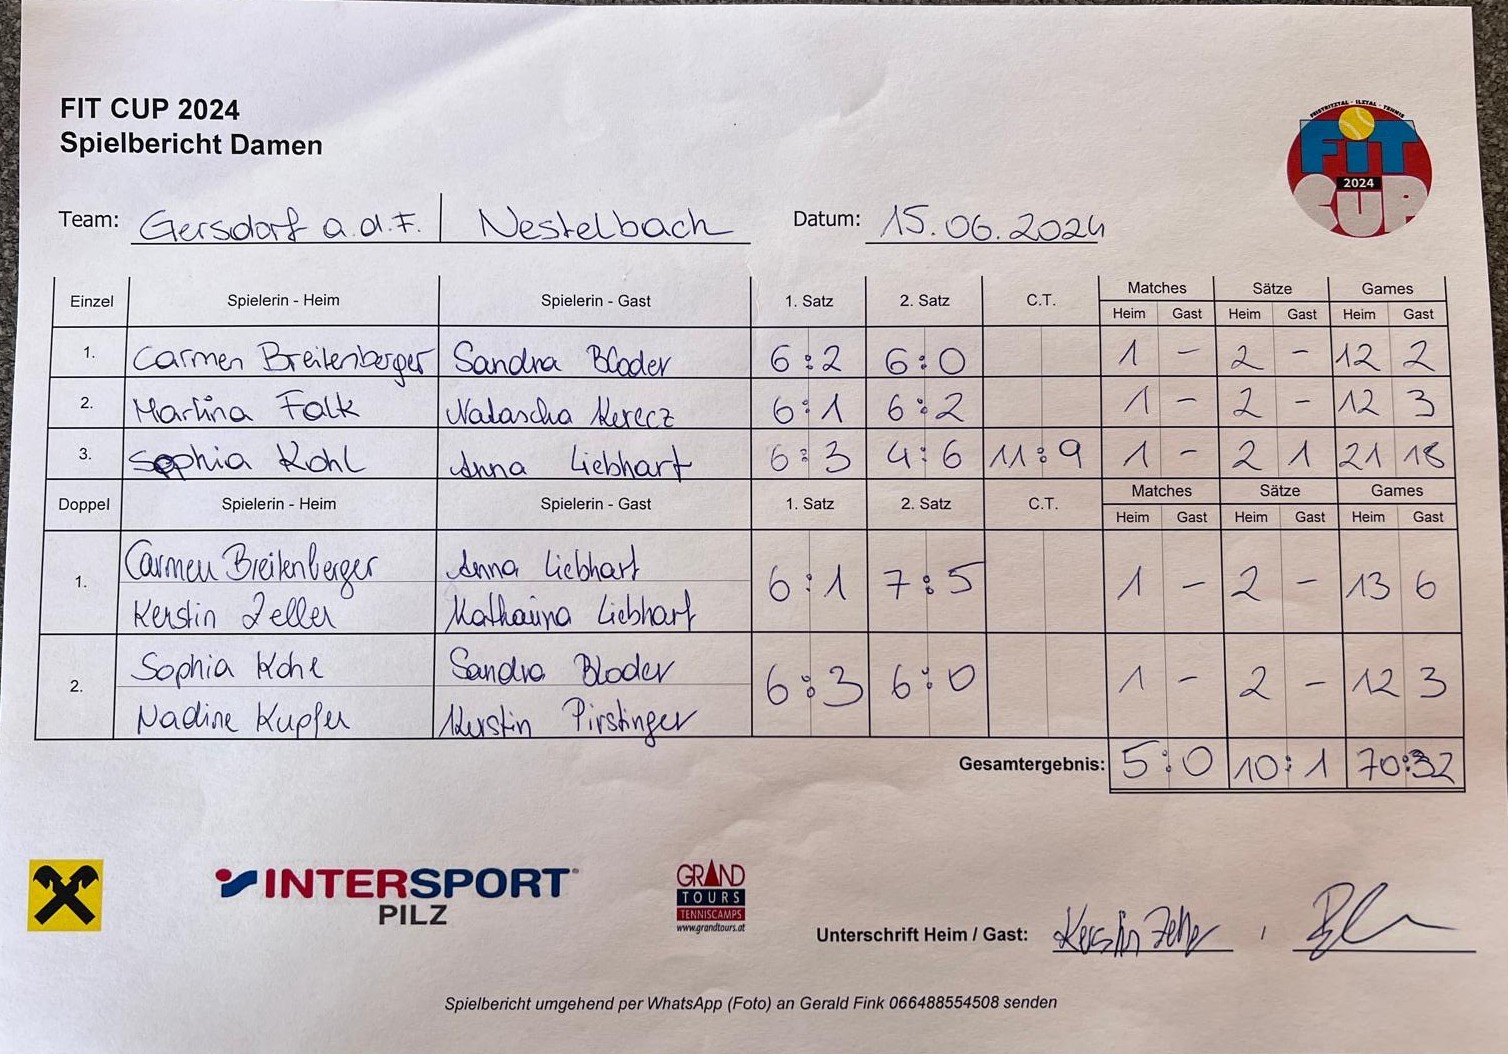 FIT CUP 2024
Spielbericht Damen
FEISTRITZTAL - ILZTAL - TENNIS
FiT
2024
CUP
Team: Gersdorf a.d.F. Nestelbach Datum: 15.06.2024
Einzel Spielerin - Heim Spielerin - Gast 1. Satz 2. Satz C.T. Matches Sätze Games
Heim Gast Heim Gast Heim Gast
1. Carmen Breitenberger Sandra Bloder 6:2 6:0 1 - 2 - 12 2
2. Martina Falk Natascha Kerecz 6:1 6:2 1 - 2 - 12 3
3. Sophia Kohl Anna Liebhart 6:3 4:6 11:9 1 - 2 1 21 18
Doppel Spielerin - Heim Spielerin - Gast 1. Satz 2. Satz C.T. Matches Sätze Games
Heim Gast Heim Gast Heim Gast
Carmen Breitenberger Anna Liebhart
1. 6:1 7:5 1 - 2 - 13 6
Kerstin Zeller Katharina Liebhart
Sophia Kohl Sandra Bloder
2. 6:3 6:0 1 - 2 - 12 3
Nadine Kupfer Kerstin Pirstinger
Gesamtergebnis: 5:0 10:1 70:32
INTERSPORT
PILZ
GRAND
TOURS
TENNISCAMPS
www.grandtours.at
Unterschrift Heim / Gast: Kerstin Zeller ,
Spielbericht umgehend per WhatsApp (Foto) an Gerald Fink 066488554508 senden